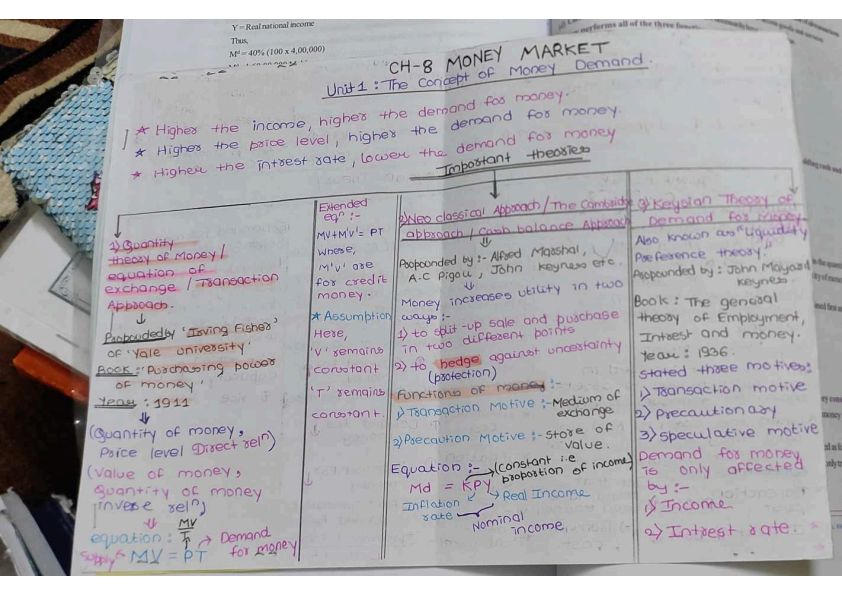 Y = Real national income
Thus,
Mᵈ = 40% (100 x 4,00,000)
CH-8 MONEY MARKET
Unit 1 : The Concept of Money Demand.
★ Higher the income, higher the demand for money.
★ Higher the price level, higher the demand for money.
★ Higher the intrest rate, lower the demand for money
Important theories
1) Quantity
theory of Money /
equation of
exchange / Transaction
Approach.
↓
Propounded by 'Irving Fisher'
of 'Yale university'
Book :- 'Purchasing power
of money'
Year : 1911
↓
(Quantity of money,
Price level Direct relⁿ)
(Value of money,
Quantity of money
inverse relⁿ)
⇓ MV
equation : T → Demand
for money
supply ← MV = PT
Extended
eqⁿ :-
MV+M'V' = PT
where,
M'V' are
for credit
money.
★ Assumption
Here,
'V' remains
constant
'T' remains
constant.
2) Neo classical Approach / The Cambridge
approach / Cash balance Approach
⇓
Propounded by :- Alfred Marshal,
A.C Pigou, John keyness etc.
↓
Money increases utility in two
ways :-
1) to split-up sale and purchase
in two different points
2) to hedge against uncertainty
(protection)
Functions of money :-
1) Transaction Motive :- Medium of
exchange
2) Precaution Motive :- Store of
value.
Equation :- → (constant i.e
proportion of income)
Md = KPY
Inflation ↙ ↘ Real Income
rate
Nominal
income
3) Keysian Theory of
Demand for Money
Also known as "Liquidity
Preference theory."
Propounded by : John Maiyard
keynes
Book : The general
theory of Employment,
Intrest and money.
Year : 1936.
stated three motives :
1) Transaction motive
2) precautionary
3) speculative motive
Demand for money
is only affected
by :-
1) Income
2) Intrest rate.